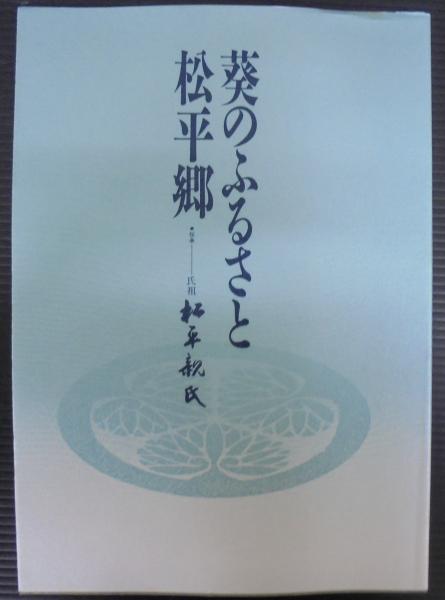 葵のふるさと
松平郷
●伝承――氏祖 松平親氏